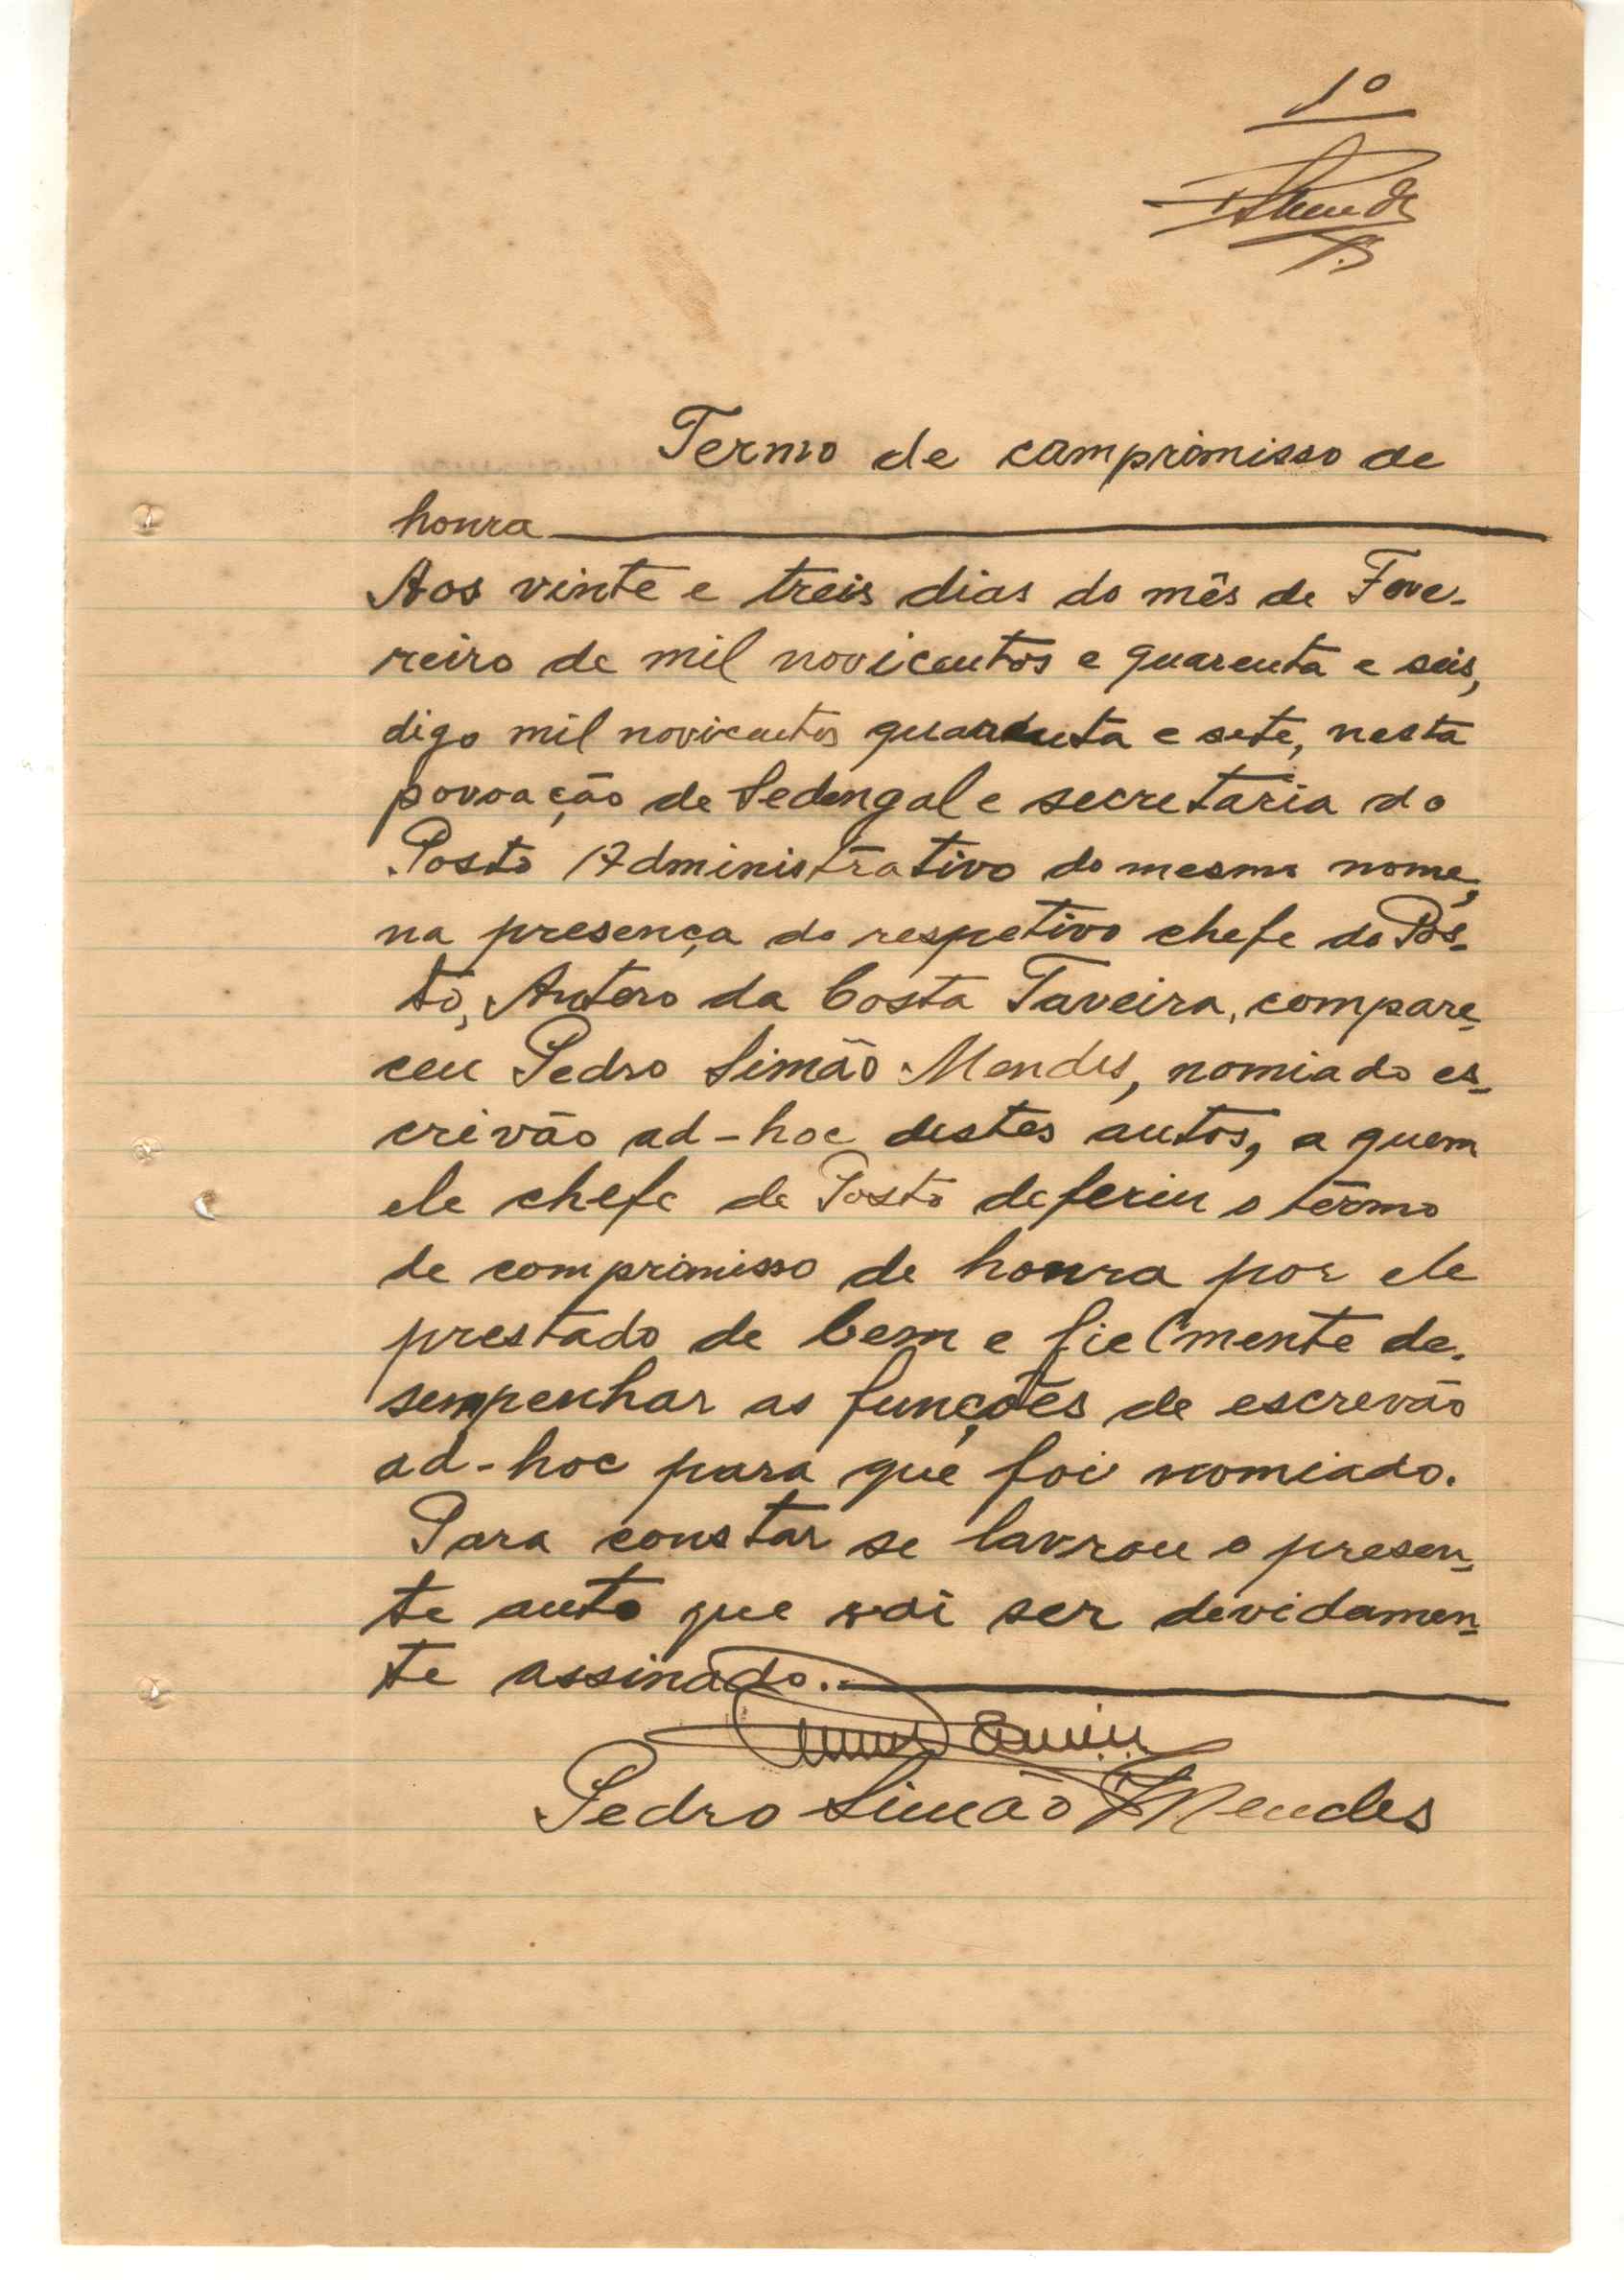 1º
Termo de compromisso de
honra
Aos vinte e treis dias do mês de Feve-
reiro de mil novicentos e quarenta e seis,
digo mil novicentos quarenta e sete, nesta
povoação de Sedengal e secretaria do
Posto Administrativo do mesmo nome,
na presença do respetivo chefe do Pôs-
to, Antero da Costa Taveira, compare-
ceu Pedro Simão Mendes, nomiado es-
crivão ad-hoc destes autos, a quem
ele chefe de Posto deferiu o têrmo
de comprimisso de honra por ele
prestado de bem e fielmente de-
sempenhar as funções de escrevão
ad-hoc para que foi nomiado.
Para constar se lavrou o presen-
te auto que vai ser devidamen-
te assinado.
Pedro Simão Mendes